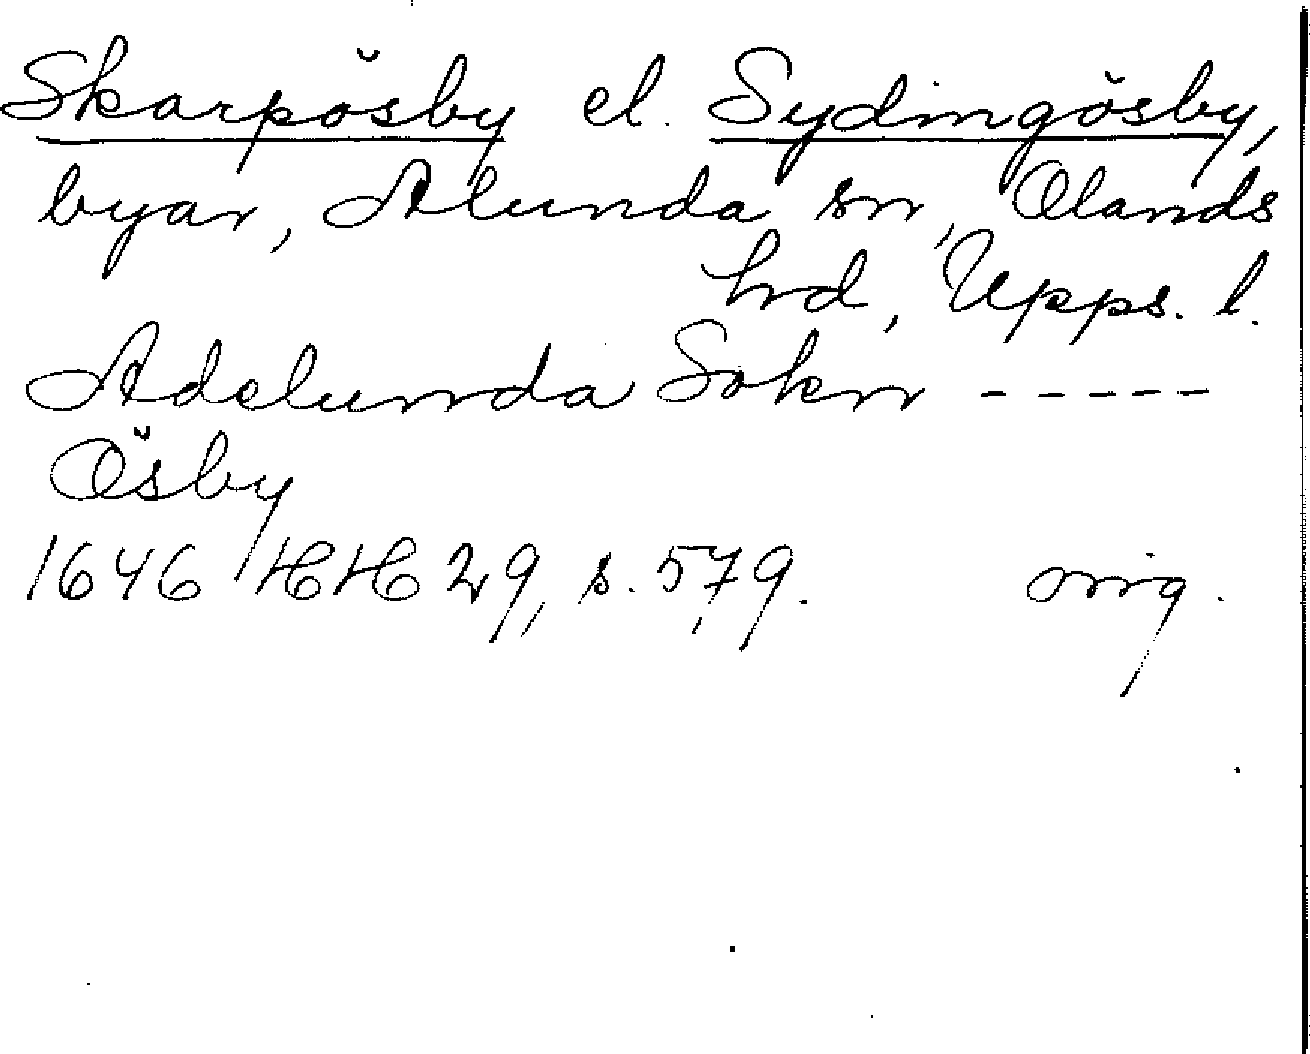 Skarpösby el. Sydingösby,
byar, Alunda sn, Olands
hrd, Upps. l.
Adelunda Sokn -----
Ösby
1646 HH 29, s. 579. orig.